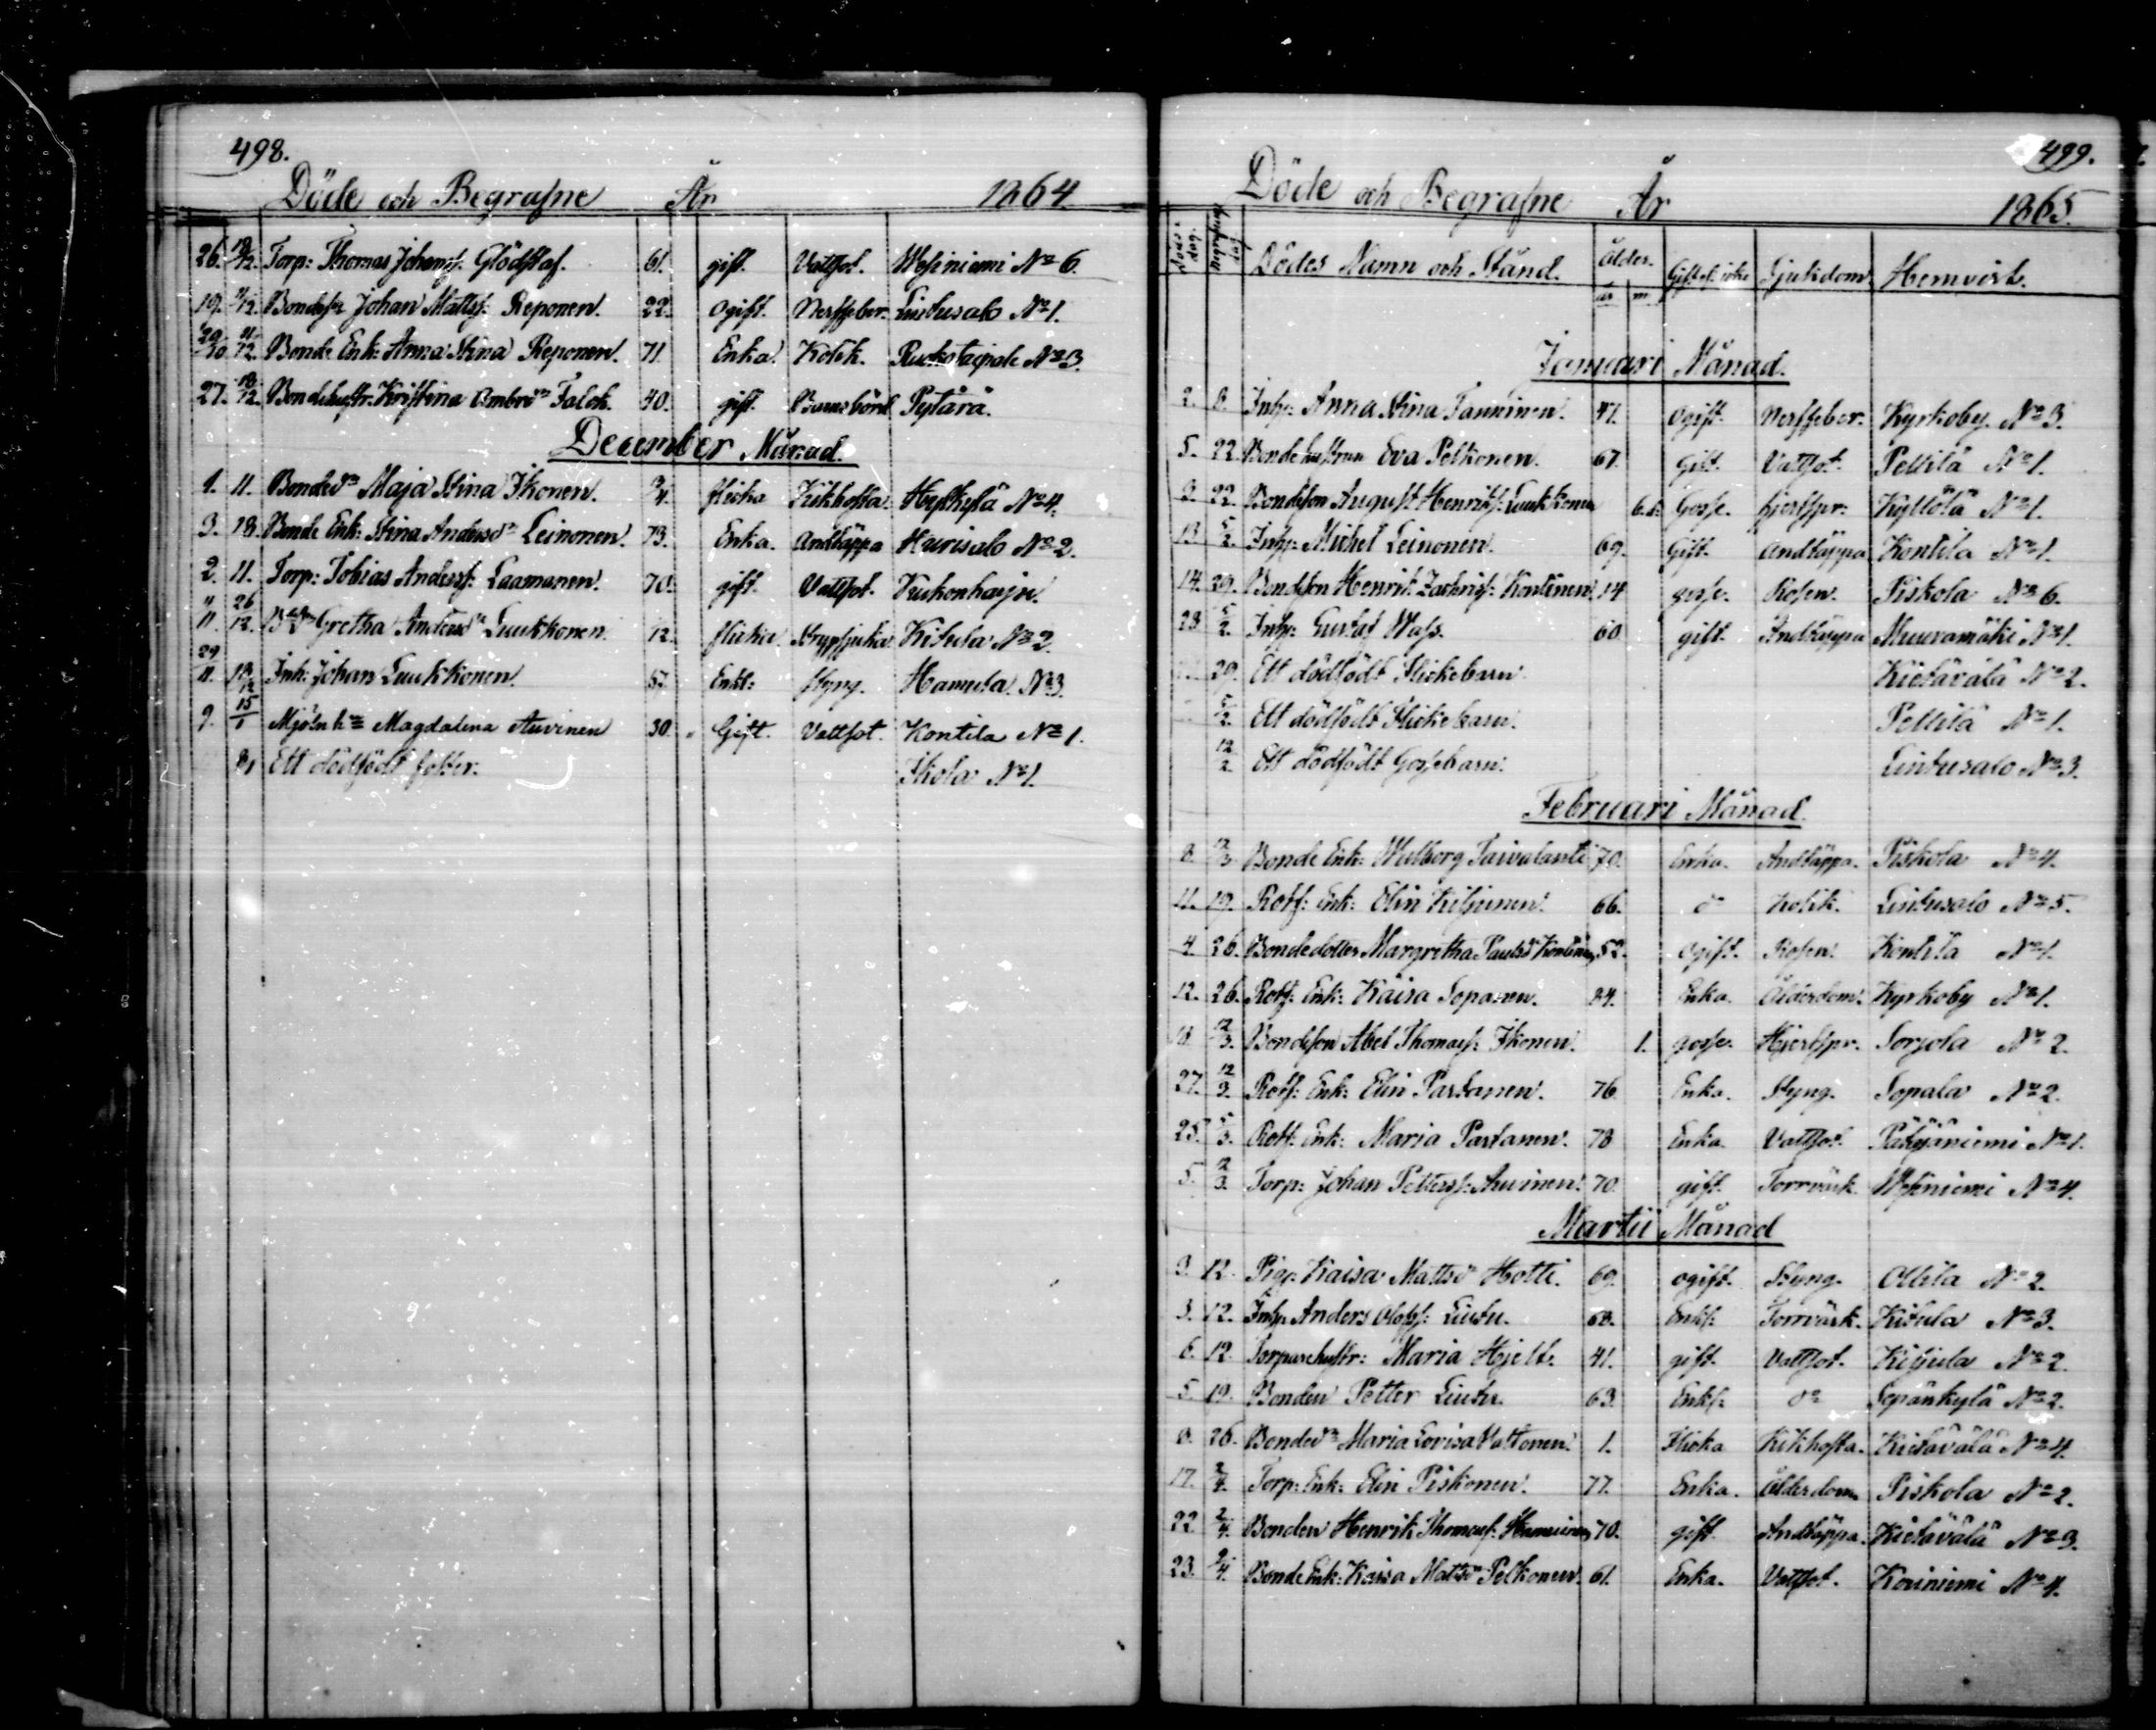 498.
Döde och Begrafne År 1864
26. 18/12. Torp: Thomas Johansf: Glödstaf. 61. gift. Vattsot. Wesiniemi No 6.
19. /12. Bondeson Johan Mattsf: Reponen. 22. ogift. Nerffeber. Lintusalo No 1.
29/10 11/12. Bonde Enk: Anna Stina Reponen. 71. Enka. Kolik. Ruokotaipale No 3.
27. 18/12. Bondehustr. Kristina Ambrdr Falck. 40. gift. Barnsbörd Pytärä.
December Månad.
1. 11. Bondedr Maja Stina Ikonen. 3/4. flicka Kikhosta. Hyrkylä No 4.
3. 18. Bonde Enk: Stina Andersdr Leinonen. 73. Enka. Andtäppa Haurisalo No 2.
2. 11. Torp: Tobias Andersf: Laamanen. 70. gift. Vattsot. Kukonharju.
11. 26/12. Gretha Andersdr Luukkonen. 12. flicka. Strypsjuka. Kitula No 2.
29/11. 18/12 Inh: Johan Luukkonen. 67. Enkl: styng. Hamula No 3.
9. 15/1 Mjöln. h Magdalena Auvinen 30. Gift. Vattsot. Kontila No 1.
8/1 Ett dödfödt foster. Ikola No 1.
499.
Döde och Begrafne År 1865.
Döds dag. Begrafn. dag Dödes Namn och Stånd. Ålder. år m Gift el. icke Sjukdom. Hemvist.
Januari Månad.
2. 8. Inh: Anna Stina Tanninen. 47. ogift. Nerffeber. Kyrkoby. No 3.
5. 22. Bondehustrun Eva Pelkonen. 67. Gift. Vattsot. Pettilä No 1.
9. 22. Bondeson August Henrikf: Luukkonen 6. Gosse. hjertspr: Kyllölä No 1.
13 5/2. Inh: Michel Leinonen. 69. Gift. Andtäppa Kontila No 1.
14. 29. Bondeson Henrik Zachrisf: Kontinen 14 gosse. Rosen. Piskola No 6.
28 5/2. Inh: Gustaf Wass. 60 gift. Andtäppa Muuramäki No 1.
29. Ett dödfödt Flickebarn. Kietävälä No 2.
5/2. Ett dödfödt Flickebarn. Pettilä No 1.
12/2 Ett dödfödt Gossebarn. Lintusalo No 3.
Februari Månad.
8. 12/3 Bonde Enk: Walborg Taivalanti 70. Enka. Andtäppa. Piskola No 4.
11. 19. Rotf: Enk: Elin Kiljunen. 66. do Kolik. Lintusalo No 5.
4. 26. Bondedotter Margretha Paulsdr Kontinen 52. ogift. Rosen. Kontila No 1.
12. 26. Rotf: Enk: Kaisa Sopanen. 84. Enka. Ålderdom. Kyrkoby No 1.
18. 12/3. Bondeson Abel Thomasf: Ikonen. 1. gosse. Hjertspr. Sorjola No 2.
27. 12/3. Rotf: Enk: Elin Partanen. 76. Enka. Styng. Sopala No 2.
25. 5/3. Rotf: Enk: Maria Partanen. 78 Enka. Vattsot. Pätkjäniemi No 1.
5. 12/3. Torp: Johan Pettersf: Auvinen. 70. gift. Torrvärk. Wesiniemi No 4.
Martii Månad
3. 12. Pig. Kaisa Mattsdr Hotti. 69. ogift. Styng. Ollila No 2.
3. 12. Inh: Anders Olofsf: Liutu. 68. Enkl: Torrvärk. Kitula No 3.
6. 12. Torparehustr: Maria Hjelt. 41. gift. Vattsot. Kiljula No 2.
5. 19. Bonden Petter Liutu. 63. Enkl: do Sepänkylä No 2.
8. 26. Bondedr Maria Lovisa Valtonen. 1. Flicka Kikhosta. Kietävälä No 4.
17. 2/4. Torp: Enk: Elin Piskonen. 77. Enka. Ålderdom. Piskola No 2.
22. 2/4. Bonden Henrik Thomasf: 70. gift. Andtäppa. Kietävälä No 3.
23. 9/4. Bonde Enk: Kaisa Mattsdr Pelkonen. 61. Enka. Vattsot. Koiniemi No 4.